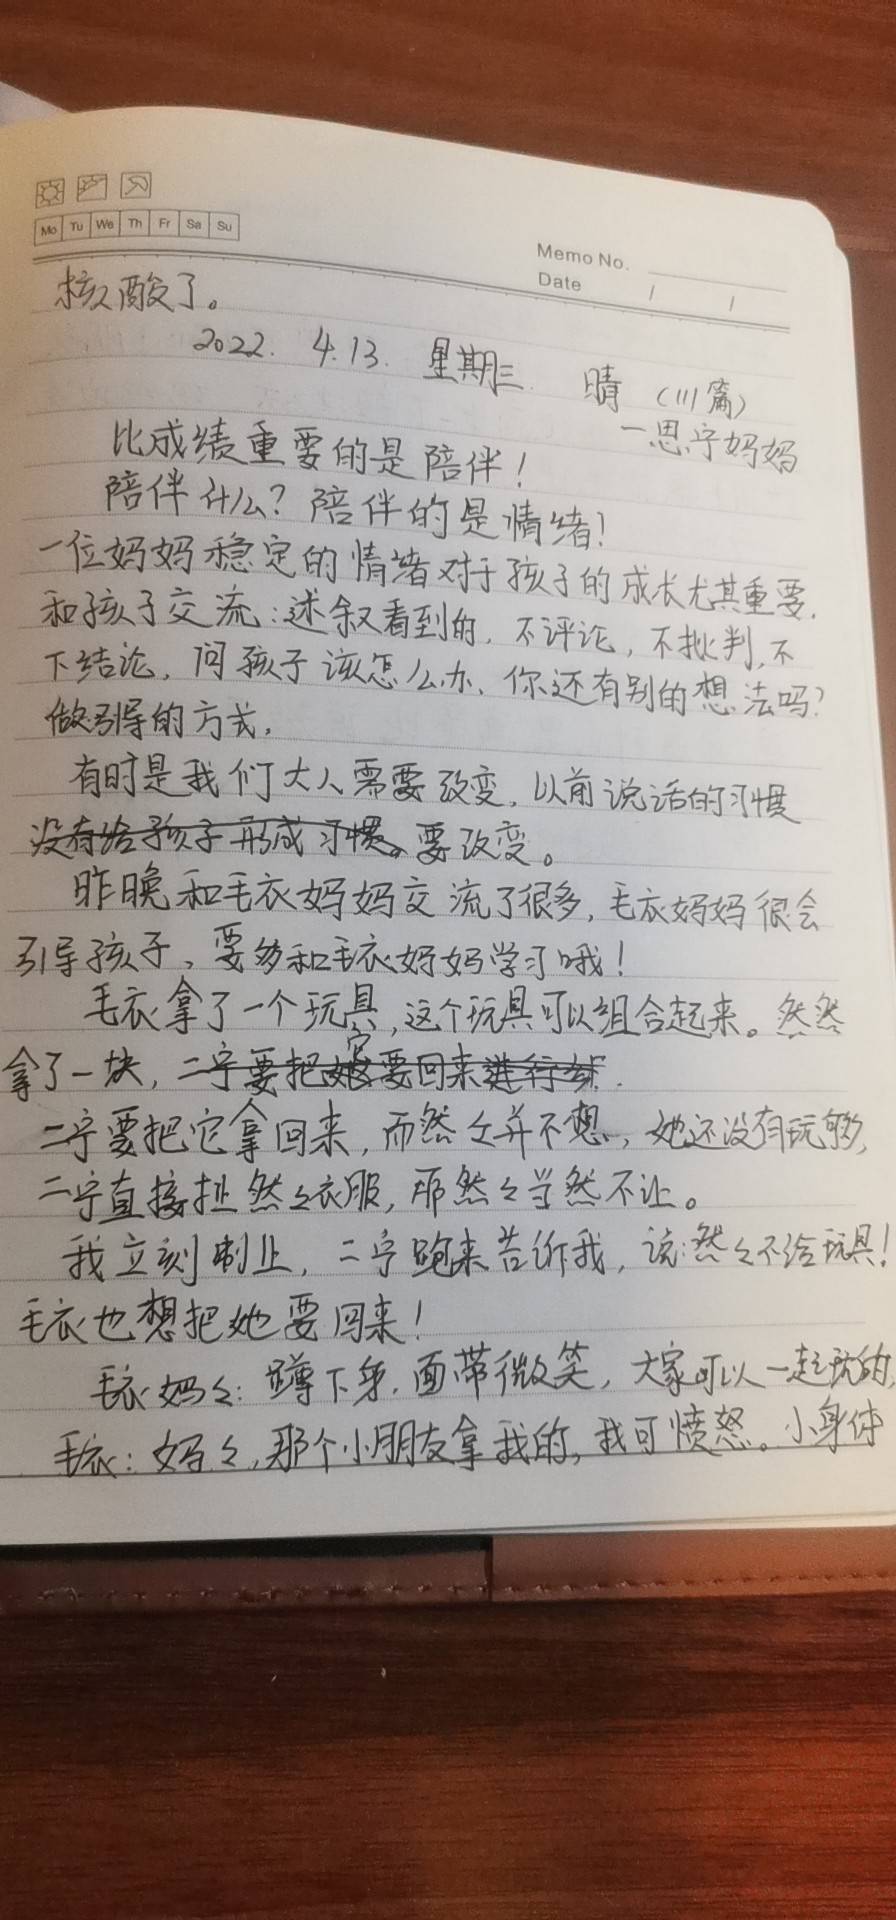 Mo Tu We Th Fr Sa Su
Memo No.
Date / /
核酸了。
2022. 4.13. 星期三. 晴 (111篇)
一思宁妈妈
比成绩重要的是陪伴!
陪伴什么?陪伴的是情绪!
一位妈妈稳定的情绪对于孩子的成长尤其重要.
和孩子交流:述叙看到的,不评论,不批判,不
下结论,问孩子该怎么办、你还有别的想法吗?
做引导的方式,
有时是我们大人需要改变,以前说话的习惯
没有给孩子形成习惯。要改变。
昨晚和毛衣妈妈交流了很多,毛衣妈妈很会
引导孩子,要多和毛衣妈妈学习哦!
毛衣拿了一个玩具,这个玩具可以组合起来。然然
拿了一块,二宁要把它要回来进行
二宁要把它拿回来,而然々并不想,她还没有玩够,
二宁直接扯然々衣服,那然々当然不让。
我立刻制止,二宁跑来告诉我,说:然々不给玩具!
毛衣也想把她要回来!
毛衣妈々:蹲下身,面带微笑,大家可以一起玩的,
毛衣:妈々,那个小朋友拿我的,我可愤怒。小身体